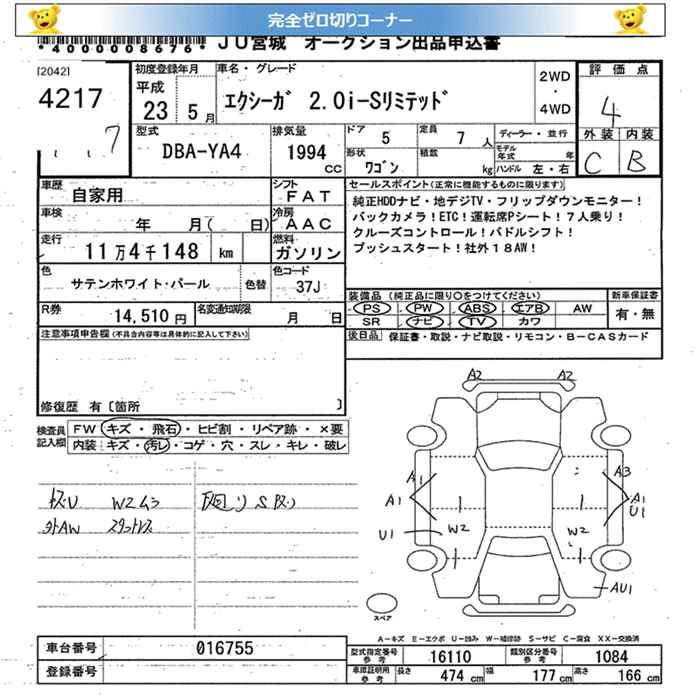 完全ゼロ切りコーナー
*4000008676* JU宮城 オークション出品申込書
[2042]
4217
7
初度登録年月
平成
23 5月
車名・グレード
エクシーガ 2.0i-Sリミテッド
2WD
・
4WD
評価点
4
外装 内装
C B
型式
DBA-YA4
排気量
1994
CC
ドア 5
形状 ワゴン
定員 7人
積載 kg
ディーラー・並行
モデル年式 年
ハンドル 左・右
車歴
自家用
シフト
FAT
車検
年 月( 日)
冷房
AAC
走行
11万4千148 km
燃料
ガソリン
色
サテンホワイト・パール 色替
色コード
37J
R券
14,510円
名変通知期限
月 日
セールスポイント(正常に機能するものに限ります)
純正HDDナビ・地デジTV・フリップダウンモニター!
バックカメラ!ETC!運転席Pシート!7人乗り!
クルーズコントロール!パドルシフト!
プッシュスタート!社外18AW!
装備品(純正品に限り○をつけてください)
PS PW ABS エアB AW
SR ナビ TV カワ
新車保証書
有・無
後日品 保証書・取説・ナビ取説・リモコン・B-CASカード
注意事項申告欄(不具合内容等は具体的に記入して下さい)
修復歴 有〔箇所 〕
検査員記入欄
FW キズ・飛石・ヒビ割・リペア跡・×要
内装 キズ・汚レ・コゲ・穴・スレ・キレ・破レ
キズU W2ム3
外AW スタットレス
下廻りSスリ
A2 A2
A1 A3
A1 A1
U1 U1
W2 W2
AU1
スペア
A-キズ E-エクボ U-凹み W-補修跡 S-サビ C-腐食 XX-交換済
車台番号 016755
登録番号
型式指定番号参考 16110
類別区分番号参考 1084
車庫証明用参考 長さ 474 cm 幅 177 cm 高さ 166 cm